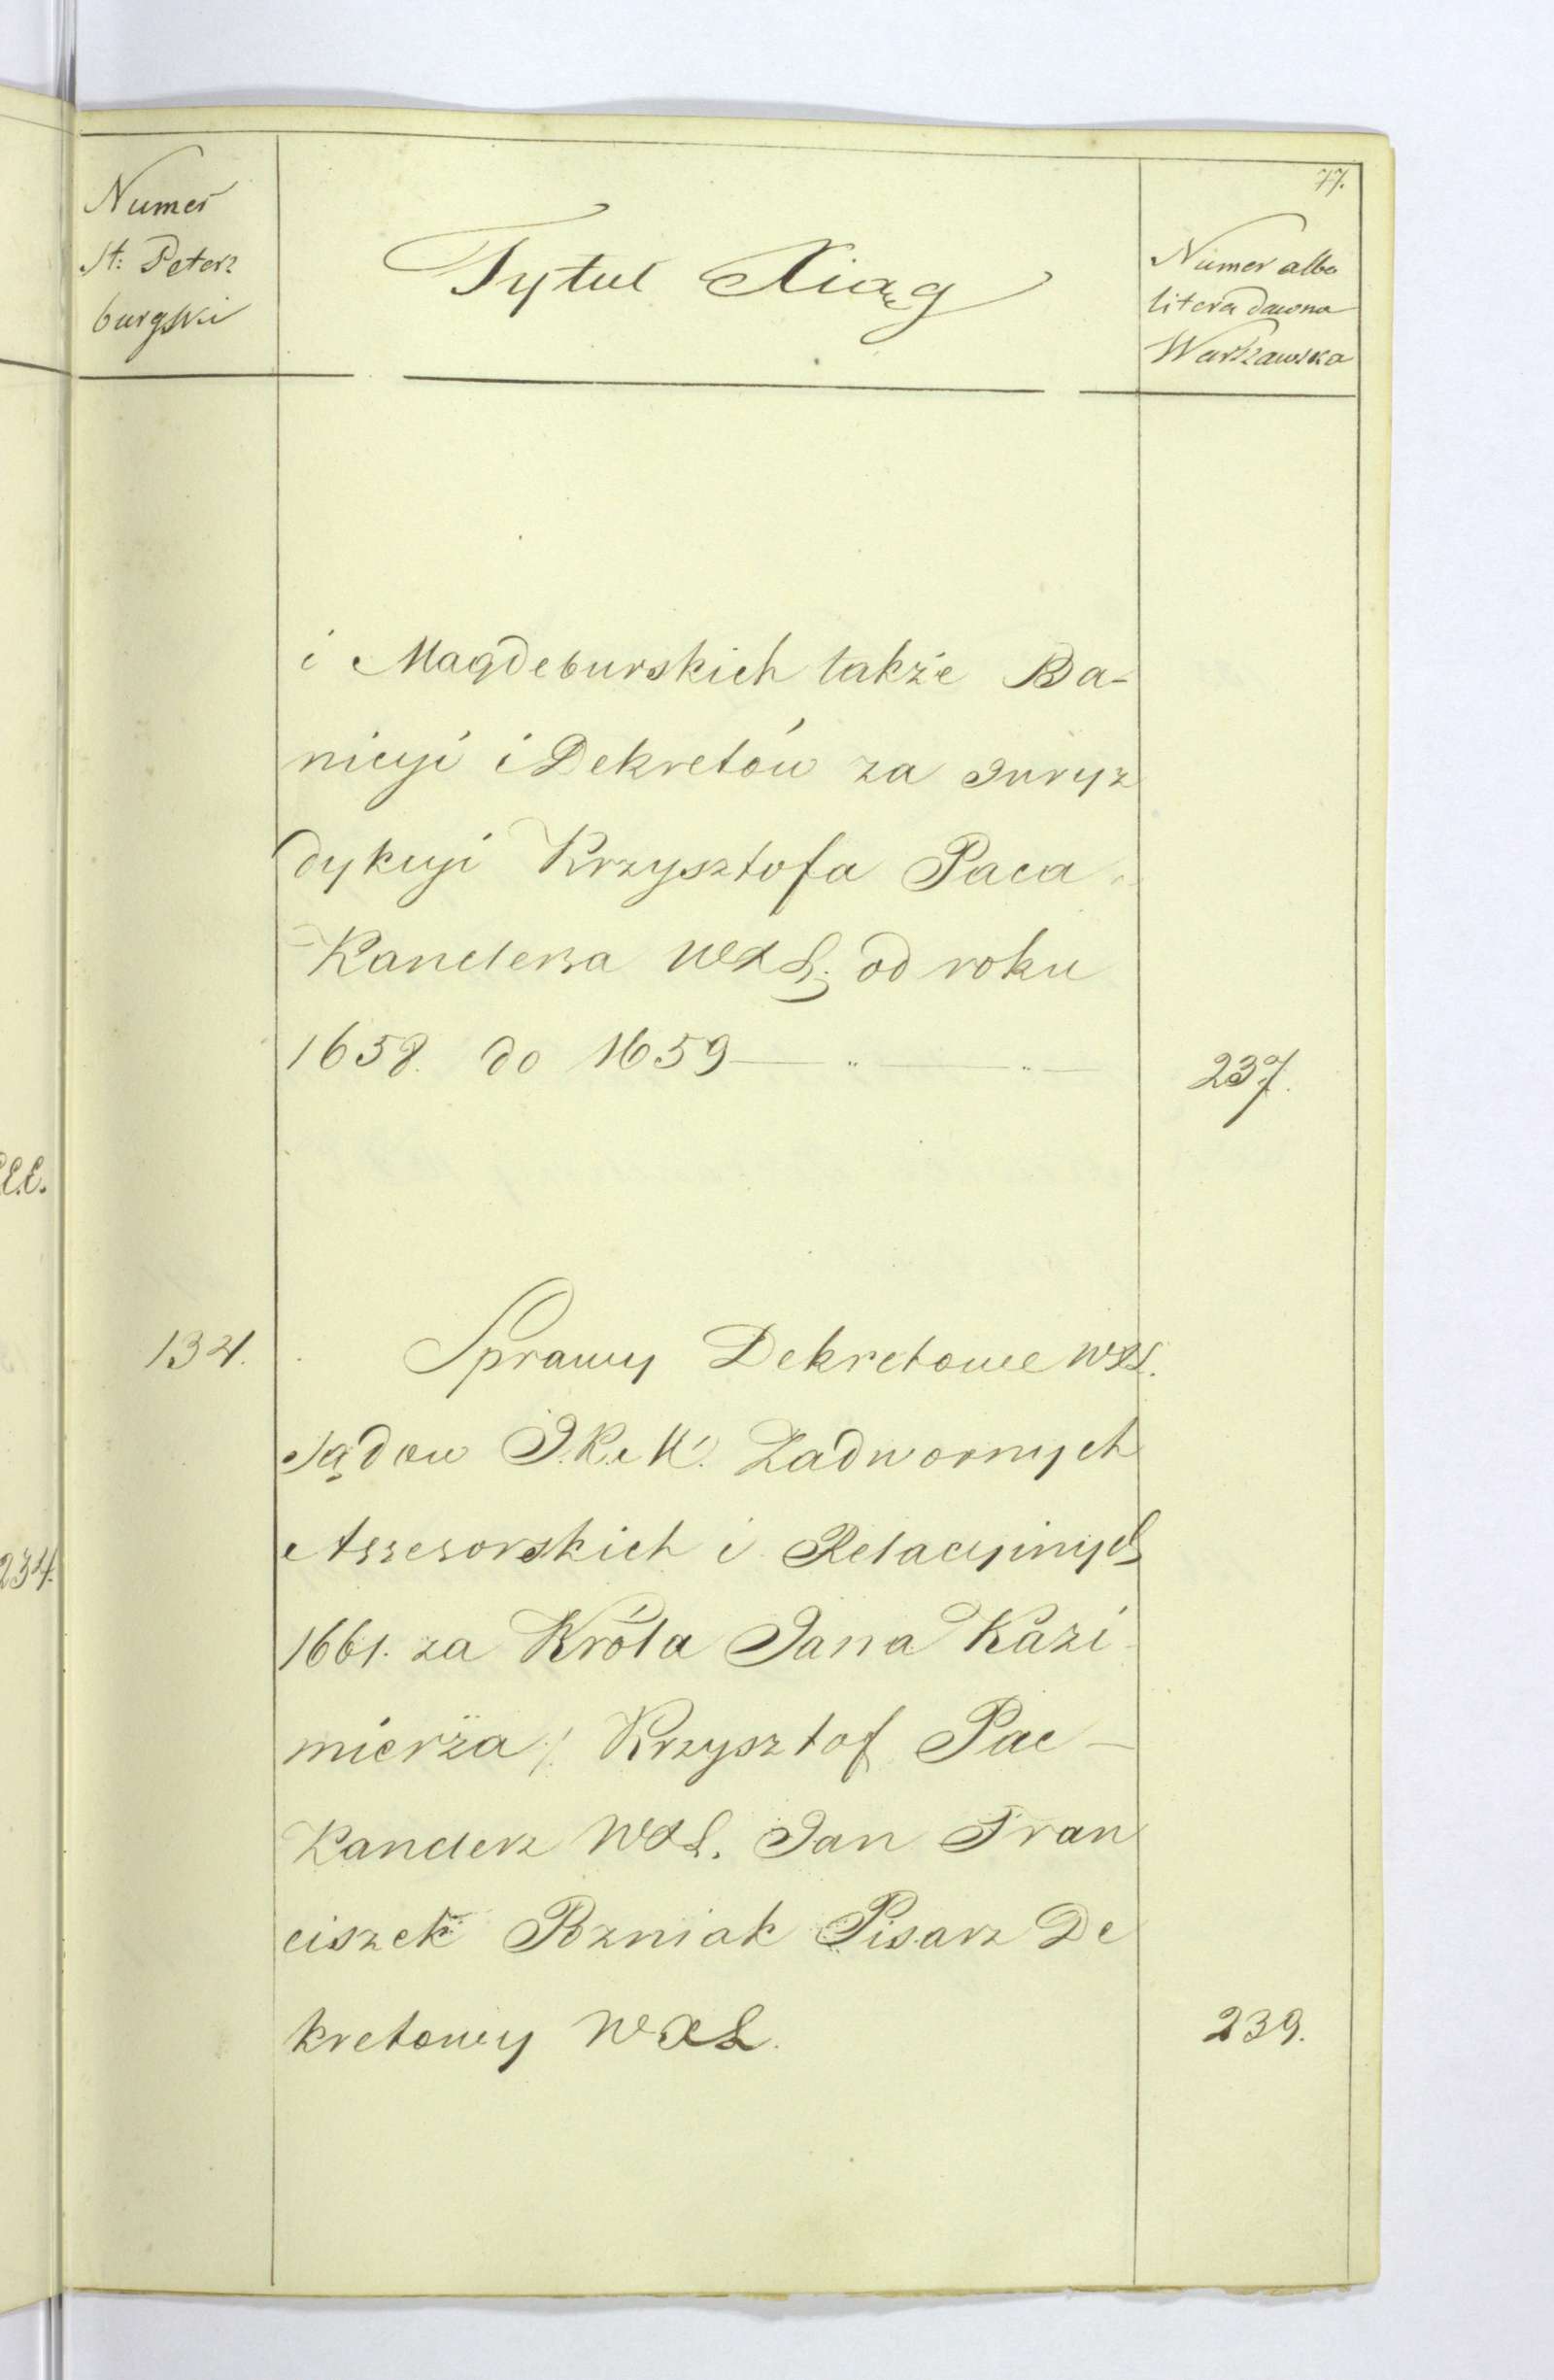 77.
Numer
St: Peterz
burgski
Tytuł Xiąg
Numer albo
litera dawna
Warszawska
i Magdeburskich także Ba-
nicyi i Dekretów za Juryz
dykcyi Krzysztofa Paca
Kanclerza WXL. od roku
1658. do 1659
237.
E.E.
134.
Sprawy Dekretowe WXL.
Sądow J.K.M. Zadwornych
Assesorskich i Relacyinych
234.
1661. za Króla Jana Kazi
mierża /: Krzysztof Pac -
Kanclerz WXL. Jan Fran
ciszek Pozniak Pisarz De
kretowy WXL.
239.